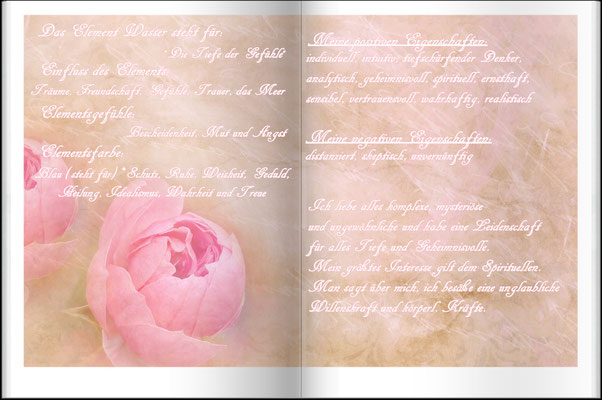 Das Element Wasser steht für:
* Die Tiefe der Gefühle
Einfluss des Elements:
Träume, Freundschaft, Gefühle, Trauer, das Meer
Elementsgefühle:
Bescheidenheit, Mut und Angst
Elementsfarbe:
Blau (steht für) * Schutz, Ruhe, Weisheit, Geduld,
Heilung, Idealismus, Wahrheit und Treue
Meine positiven Eigenschaften:
individuell, intuitiv, tiefschürfender Denker,
analytisch, geheimnisvoll, spirituell, ernsthaft,
sensibel, vertrauensvoll, wahrhaftig, realistisch
Meine negativen Eigenschaften:
distanziert, skeptisch, unvernünftig
Ich liebe alles komplexe, mysteriöse
und ungewöhnliche und habe eine Leidenschaft
für alles Tiefe und Geheimnisvolle.
Mein größtes Interesse gilt dem Spirituellen.
Man sagt über mich, ich besäße eine unglaubliche
Willenskraft und körperl. Kräfte.